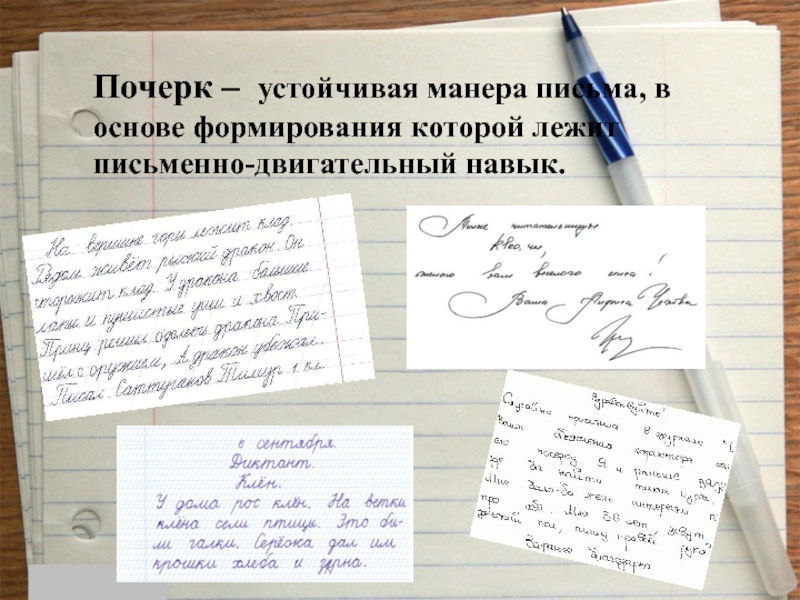 Почерк – устойчивая манера письма, в
основе формирования которой лежит
письменно-двигательный навык.
На вершине горы лежит клад.
Рядом живёт рыжий дракон. Он
сторожит клад. У дракона большие
лапы и пушистые уши и хвост.
Принц решил одолеть дракона. При-
шёл с оружием, А дракон убежал.
Писал Саттуганов Тимур 1 кл.
читательницы
желаю вам весёлого
Ваша Лариса
6 сентября.
Диктант.
Клён.
У дома рос клён. На ветки
клёна сели птицы. Это бы-
ли галки. Серёжа дал им
крошки хлеба и зерна.
Здравствуйте!
Случайно прочитала в журнале
Вам определения характера
его почерку. Я и раньше
где найти таких
Мне было бы же интересно
про себя. Мне 36 лет, зовут
пол, пишу правой рукой
Заранее благодарю